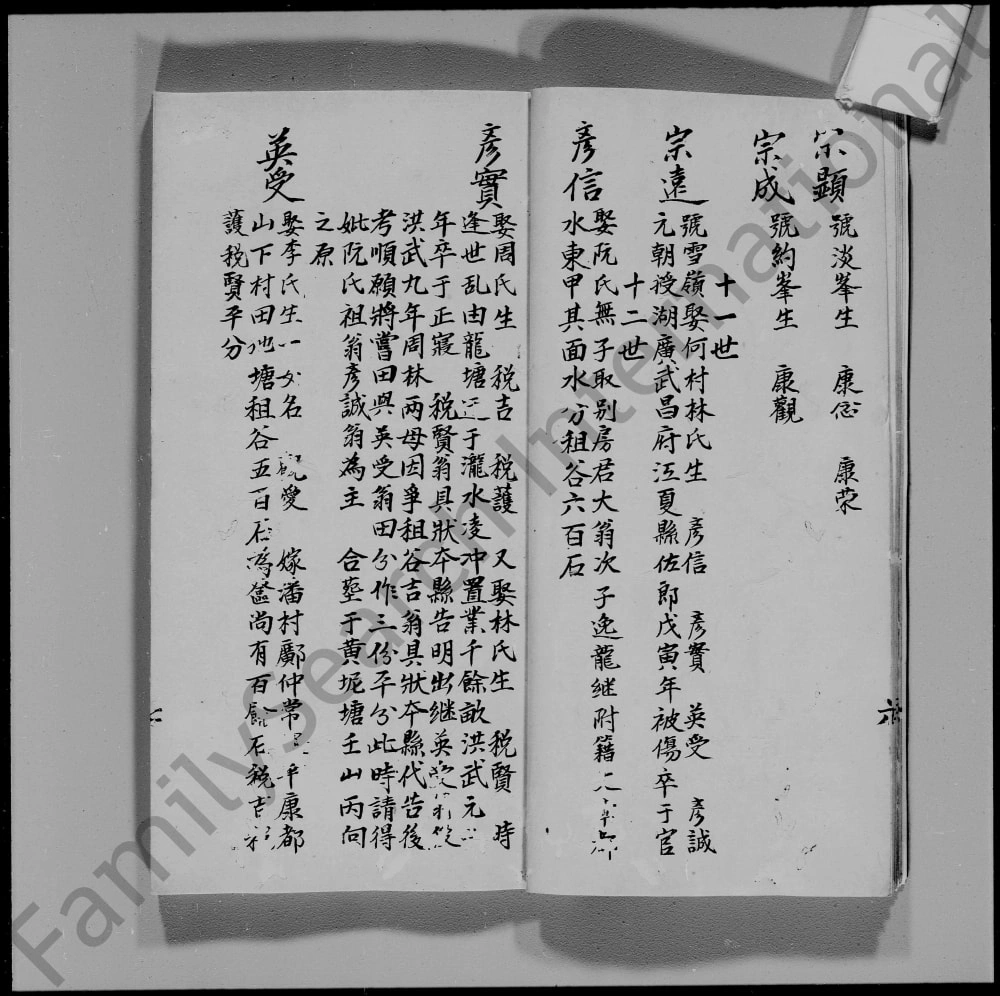 宗顯 號淡峯生 康 康荣
宗成 號約峯生 康觀
十一世
宗遠 號雪嶺娶何村林氏生 彥信 彥實 英受 彥誠
元朝授湖廣武昌府江夏縣佐郎戊寅年被傷卒于官
十二世
彥信 娶阮氏無子取别房君大翁次子逸龍继附籍
水東甲其面水方租谷六百石
六
彥實 娶周氏生 税吉 税護 又娶林氏生 税賢 時
逢世乱由龍塘 于瀧水凌冲置業千餘畝洪武元
年卒于正寢 税賢翁具狀本縣告明出继英受
洪武九年周林两母因爭租谷吉翁具狀本縣代告後
考順願將嘗田與英受翁田分作三份平分此時請得
妣阮氏祖翁彥誠翁為主 合塟于黄坭塘壬山丙向
之原
英受 娶李氏生一女名 觀愛 嫁潘村鄺仲常 康都
山下村田地塘租谷五百石為奩尚有百餘石税吉税
護税賢平分
七
FamilySearch International